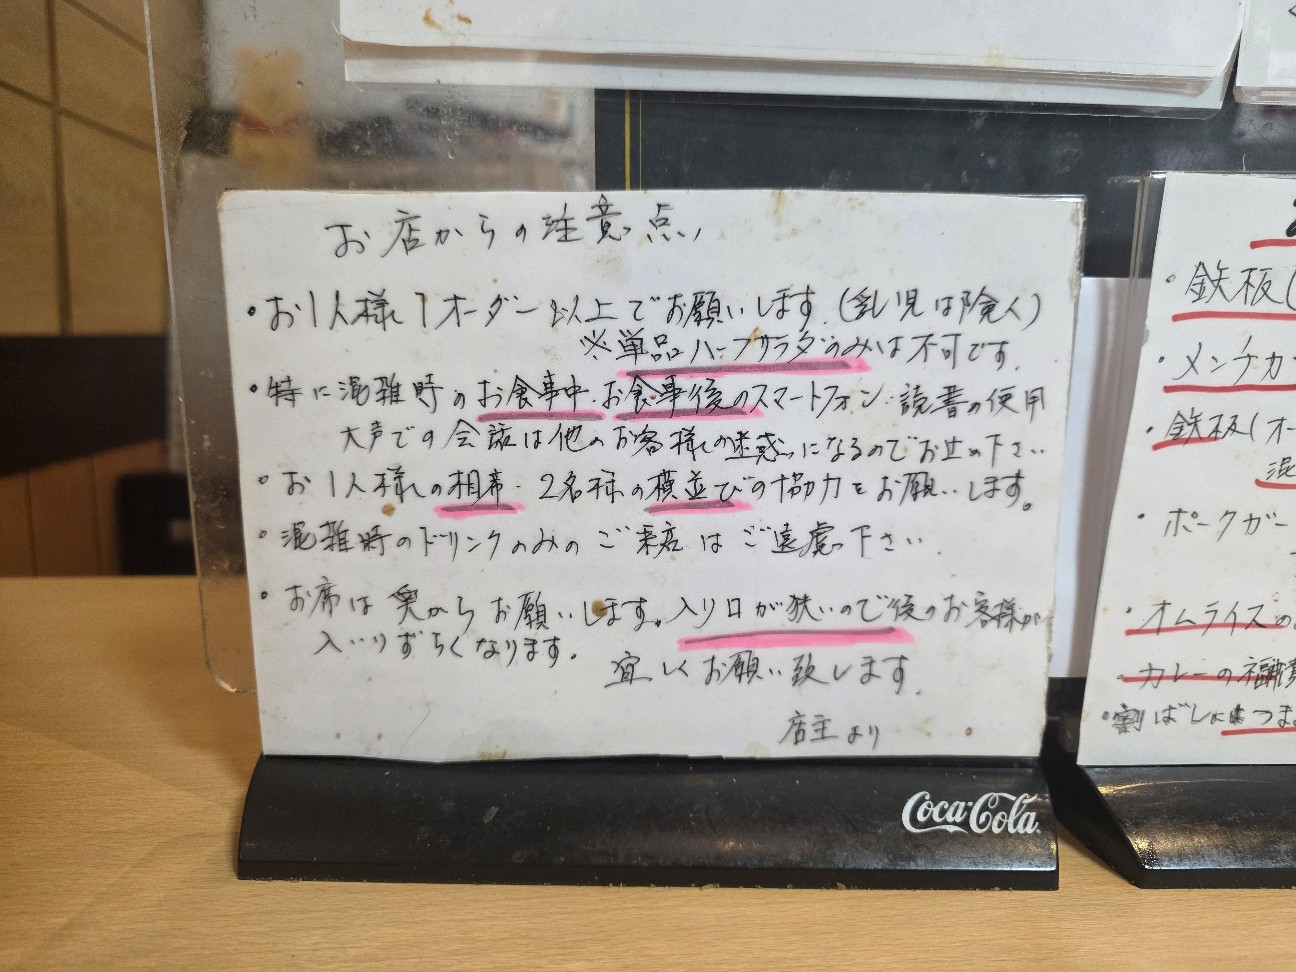 お店からの注意点
・お1人様1オーダー以上でお願いします.(乳児は除く)
※単品ハーフサラダのみは不可です.
・特に混雑時のお食事中.お食事後のスマートフォン・読書の使用
大声での会話は他のお客様の迷惑になるのでお止め下さい
・お1人様の相席・2名様の横並びの協力をお願いします。
・混雑時のドリンクのみのご来店はご遠慮下さい.
・お席は奥からお願いします。入り口が狭いので後のお客様が
入いりずらくなります。
宜しくお願い致します.
店主より
Coca-Cola
・鉄板(
・メンチカ
・鉄板(オー
混
・ポークガー
・オムライスの
・カレーの福神
・割ばしはつま